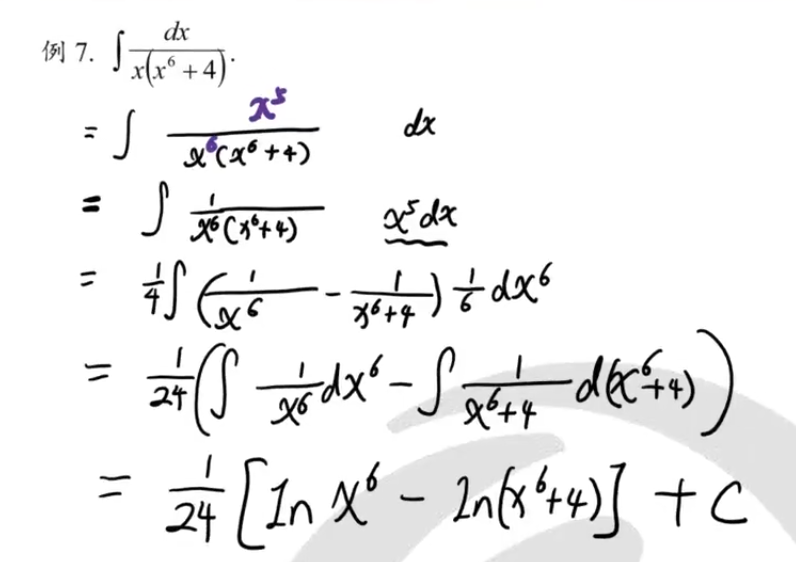 例 7. ∫ dx / x(x⁶ + 4) .
= ∫ x⁵ / x⁶(x⁶ + 4) dx
= ∫ 1 / x⁶(x⁶+4) x⁵dx
= 1/4 ∫ (1/x⁶ - 1/(x⁶+4)) 1/6 dx⁶
= 1/24 (∫ 1/x⁶ dx⁶ - ∫ 1/(x⁶+4) d(x⁶+4))
= 1/24 [ln x⁶ - ln(x⁶+4)] + C